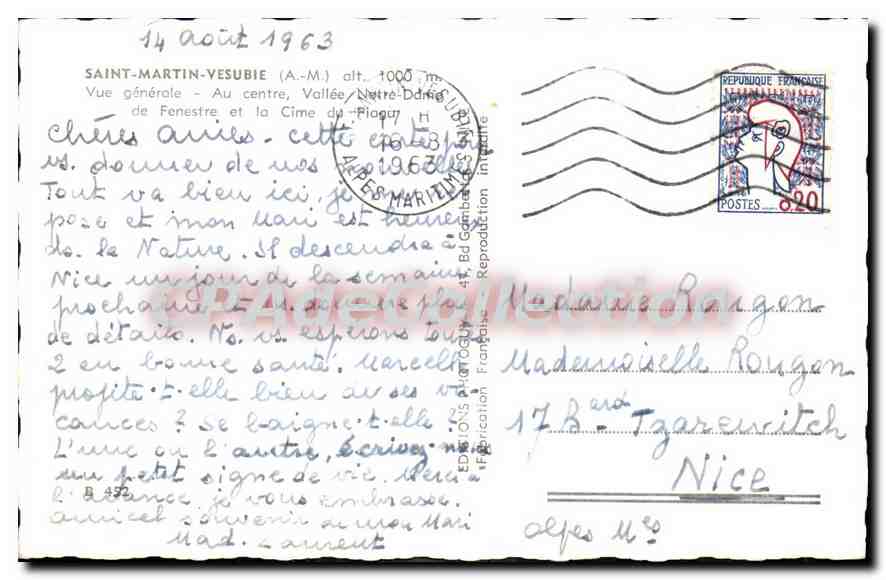 14 août 1963
SAINT-MARTIN-VESUBIE (A.-M.) alt. 1000 m
Vue générale - Au centre, Vallée Notre-Dame
de Fenestre et la Cime du Piagu
Chères amies - cette carte pour
vs. donner de nos nouvelles
Tout va bien ici, je
pose et mon Mari est heureux
ds. la Nature. Il descendra à
Nice un jour de la semaine
prochaine et vs. donnera plus
de détails. Ns. vs. espérons tous
2 en bonne santé. Marcelle
profite-t-elle bien de ses va
cances ? Se baigne-t-elle ?
L'une ou l'autre, écrivez-moi
un petit signe de vie. Merci à
B 452
l'avance, je vous embrasse.
amical souvenir de mon Mari
Mad. Laurent
ST MARTIN VESUBIE
17 H
16 -8
1963
ALPES MARITIMES
REPUBLIQUE FRANÇAISE
POSTES
0.20
EDITIONS PHOTOGUY - 47, Bd Gambetta - NICE
Fabrication Française - Reproduction Interdite
CPAdeCollection
Madame Rougon
Mademoiselle Rougon
17 Bard Tzarewitch
Nice
Alpes Mes